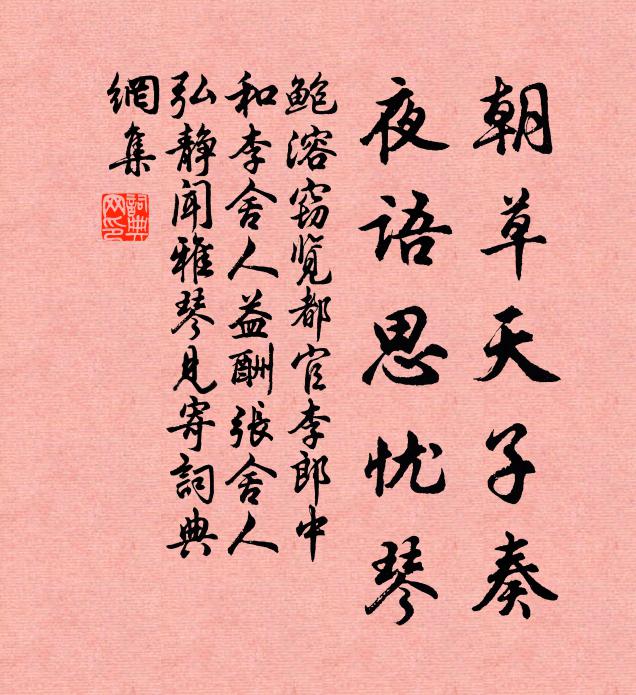 朝草天子奏
夜语思忧琴
鲍溶窃览都官李郎中
和李舍人益酬张舍人
弘静闻雅琴见寄词典
網集
詞典網印